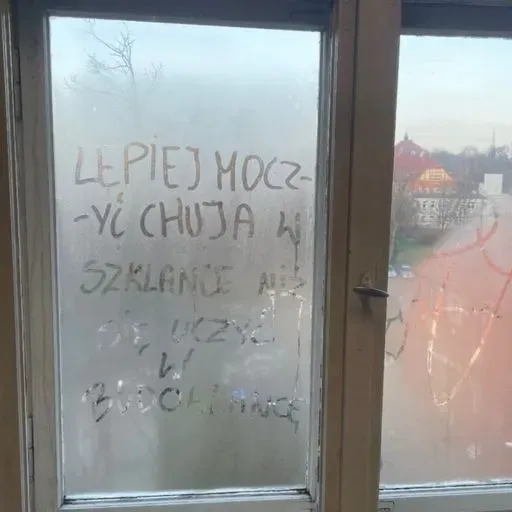 LEPIEJ MOCZ-
-YĆ CHUJA W
SZKLANCE NIŻ
SIĘ UCZYĆ
W
BUDOWLANCE